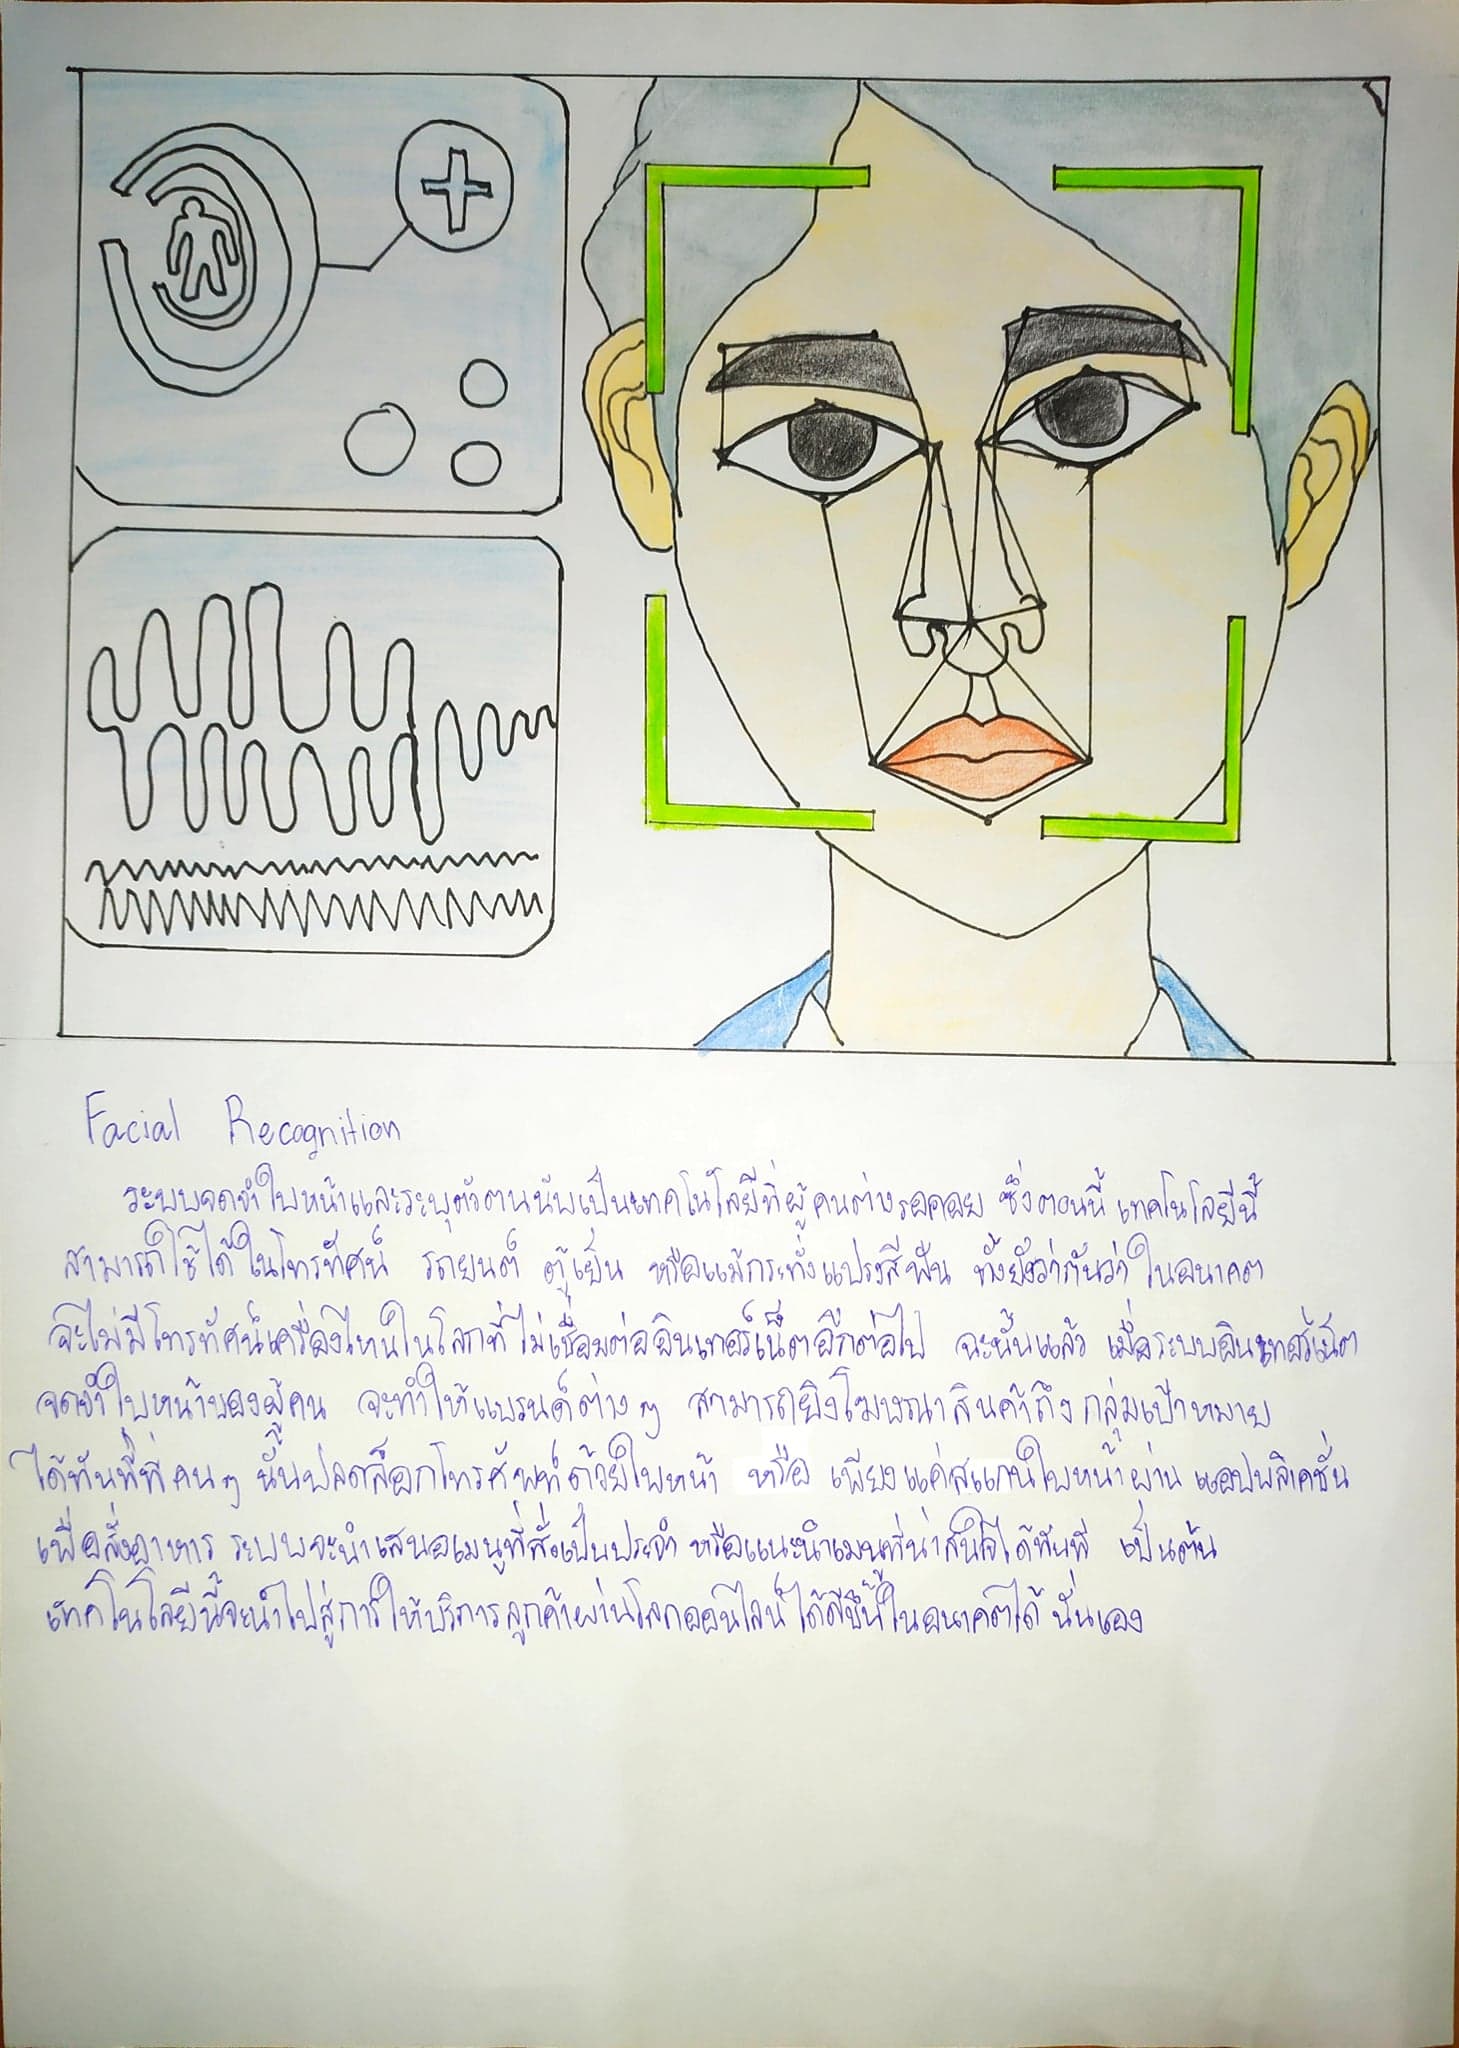 Facial Recognition
ระบบจดจำใบหน้าและระบุตัวตนนับเป็นเทคโนโลยีที่ผู้คนต่างรอคอย ซึ่งตอนนี้ เทคโนโลยีนี้
สามารถใช้ได้ในโทรทัศน์ รถยนต์ ตู้เย็น หรือแม้กระทั่งแปรงสีฟัน ทั้งยังว่ากันว่า ในอนาคต
จะไม่มีโทรทัศน์เครื่องไหนในโลกที่ไม่เชื่อมต่ออินเทอร์เน็ตอีกต่อไป ฉะนั้นแล้ว เมื่อระบบอินเทอร์เน็ต
จดจำใบหน้าของผู้คน จะทำให้แบรนด์ต่าง ๆ สามารถยิงโฆษณาสินค้าถึง กลุ่มเป้าหมาย
ได้ทันที่ที่คน ๆ นั้นปลดล็อกโทรศัพท์ด้วยใบหน้า หรือ เพียงแค่สแกนใบหน้าผ่าน แอปพลิเคชั่น
เพื่อสั่งอาหาร ระบบจะนำเสนอเมนูที่สั่งเป็นประจำ หรือแนะนำเมนูที่น่าสนใจได้ทันที เป็นต้น
เทคโนโลยีนี้จะนำไปสู่การให้บริการลูกค้าผ่านโลกออนไลน์ได้ดีขึ้นในอนาคตได้ นั่นเอง